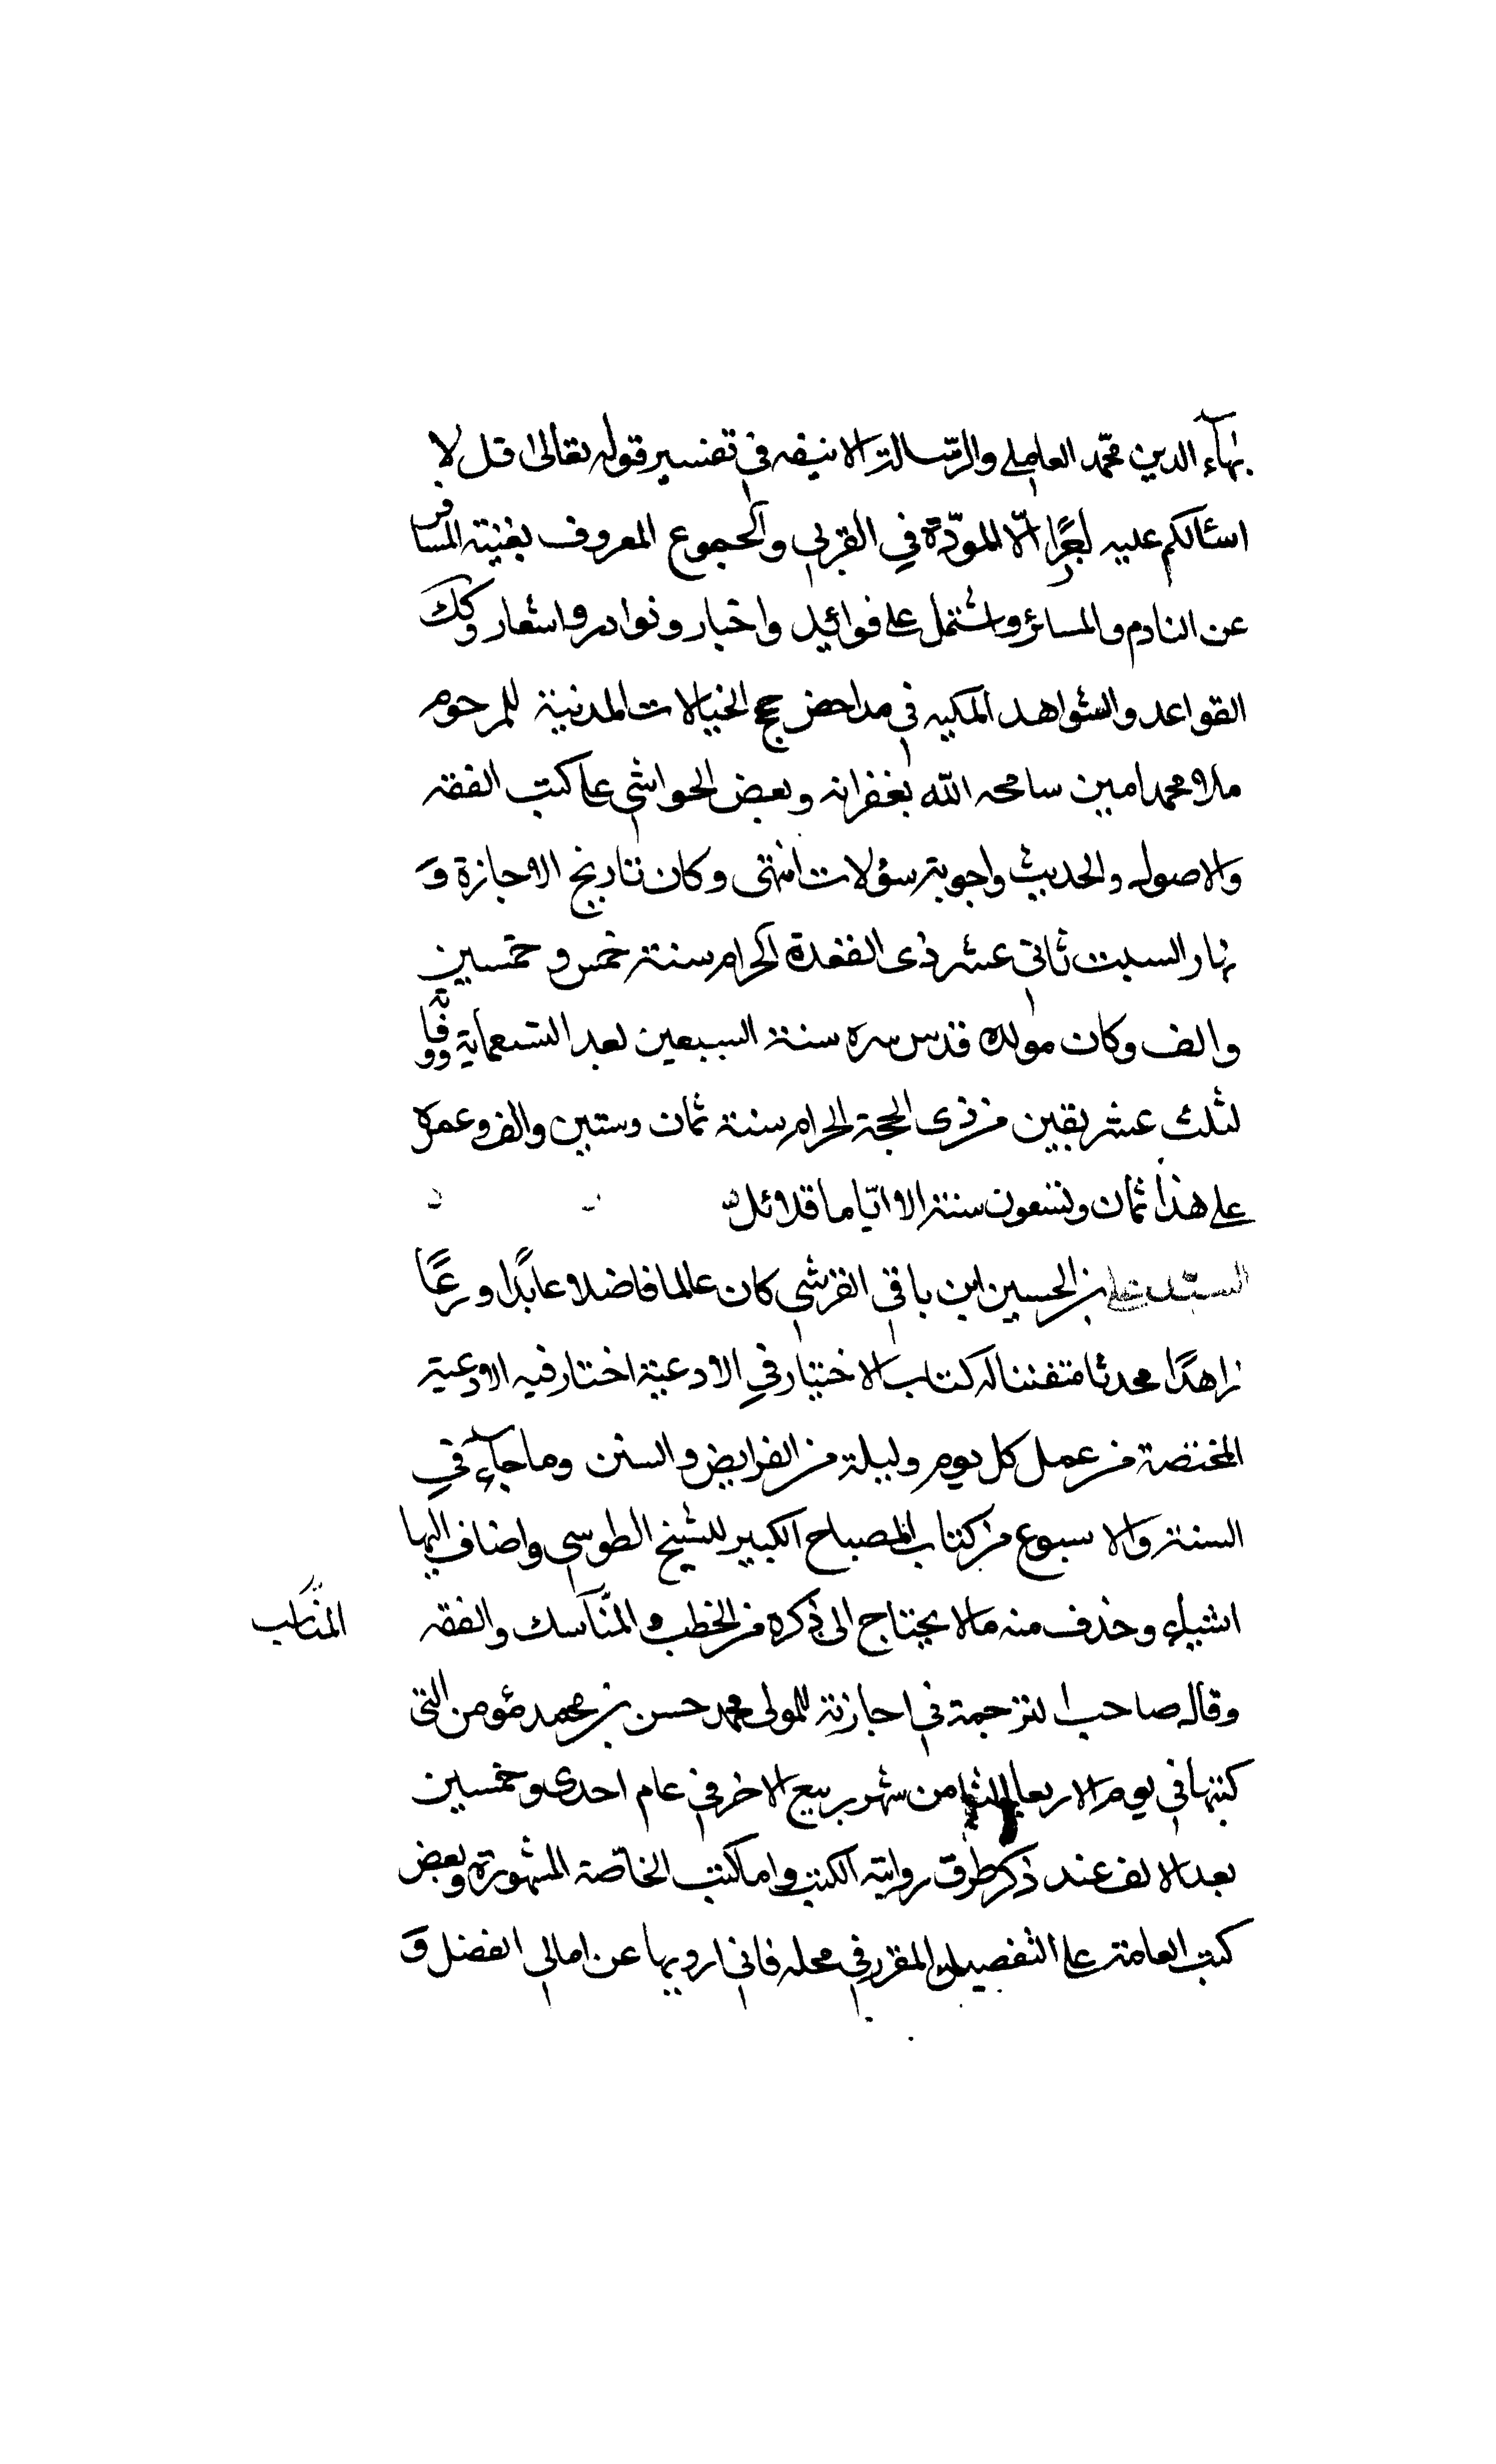 بهآء الدين محمّد العاملي والرّسالة الانيفه في تفسير قوله تعالى قل لا
اسئالكم عليه اجرًا الّا المودّة في القربى والمجموع المعروف بغنية المسافر
عن النادم والمسائر واشتمل على فوائد واخبار ونوادر واشعار وكتاب
القواعد والشواهد المكيه في مداحض حجج الخيالات المدنية للمرحوم
ملا محمد امين سامحه الله بغفرانه وبعض الحواشي على كتب الفقه
والاصول والحديث واجوبة سؤلات انتهى وكان تاريخ الاجازة و
نهار السبت ثاني عشر ذى القعدة الحرام سنة خمس وخمسين
والف وكان مولده قدس سره سنة السبعين بعد التسعماية ووفاته
لثلث عشر بقين من ذى الحجة الحرام سنة ثمان وستين والف وعمره
على هذا ثمان وتسعون سنة الا ايّاما قلائل
السيد علي بن الحسين ابن باقي القرشي كان عالما فاضلا عابدًا ورعًا
زاهدًا محدثا متفننا له كتاب الاختيار في الادعية اختار فيه الادعية
المختصة من عمل كل يوم وليلة من الفرايض والسنن وما جآء في
السنة والاسبوع من كتاب المصباح الكبير للشيخ الطوسي واضاف اليها
اشياء وحذف منه ما لا يحتاج الى ذكره من الخطب والمنّاسك والفقه
وقال صاحب الترجمة في اجازته للمولى محمد حسن بن محمد مؤمن التي
كتبها في يوم الاربعا الثامن شهر ربيع الاخر في عام احدى وخمسين
بعد الالف عند ذكر طرق روايته الكتب واما كتب الخاصّة المشهورة وبعض
كتب العامة على التفصيل المقرر في محله فاني ارويها عن امالي الفضل و